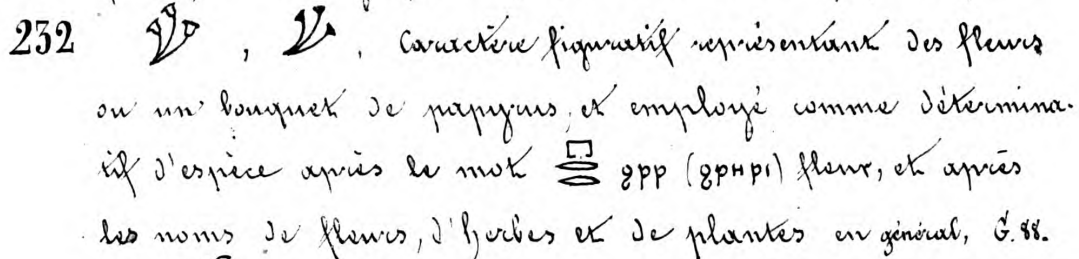 232 𓇬 , 𓇬 . Caractère figuratif représentant des fleurs
ou un bouquet de papyrus, et employé comme détermina-
tif d'espèce après le mot 𓉔𓂋𓂋 ϩⲣⲣ (ϩⲣⲏⲣⲓ) fleur, et après
les noms de fleurs, d'herbes et de plantes en général, G. 88.